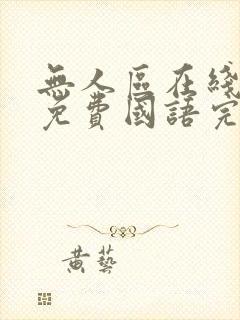 無人區在綫
免費國語完
黄藝